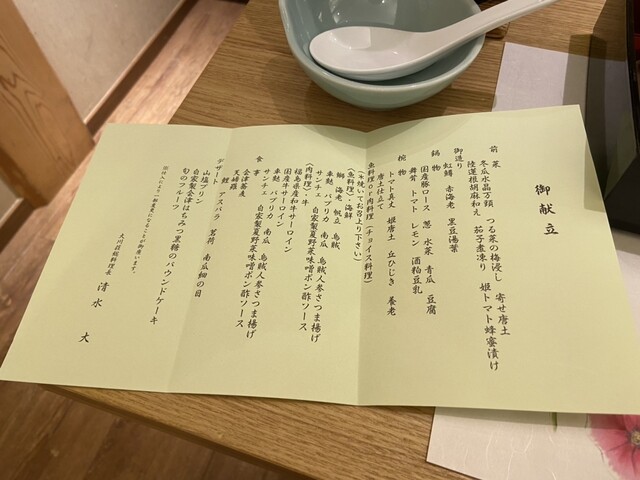 御献立
前菜
冬瓜水晶万頭 つる菜の梅浸し 寄せ唐土
陸蓮根胡麻和え 茄子煮凍り 姫トマト蜂蜜漬け
御造り
虹鱒 赤海老 黒豆湯葉
鍋物
国産豚ロース 葱 水菜 青瓜 豆腐
舞茸 トマト レモン 酒粕豆乳
椀物
トマト真丈 姫唐土 丘ひじき 養老
唐土仕立て
魚料理or肉料理(チョイス料理)
(※焼いてお召上り下さい)
(魚料理)・海鮮
鯛 海老 帆立 烏賊
車麩 パプリカ 南瓜 烏賊人参さつま揚げ
サンチェ 自家製夏野菜味噌ポン酢ソース
(肉料理)・牛
福島県産和牛サーロイン
国産牛サーロイン
車麩 パプリカ 南瓜 烏賊人参さつま揚げ
サンチェ 自家製夏野菜味噌ポン酢ソース
食事
会津蕎麦
天婦羅
鯉 アスパラ 茗荷 南瓜細の目
デザート
山塩プリン
自家製会津はちみつ黒糖のパウンドケーキ
旬のフルーツ
仕入れにより一部変更になることが御座います。
大川荘総料理長
清水 大